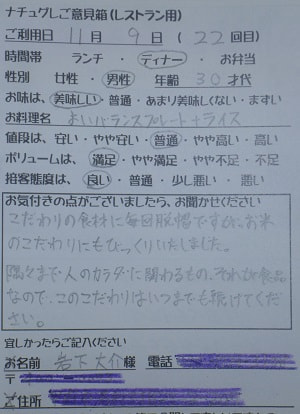 ナチュグしご意見箱(レストラン用)
ご利用日 11月 9日 (22回目)
時間帯 ランチ・ディナー・お弁当
性別 女性・男性 年齢 30才代
お味は、美味しい・普通・あまり美味しくない・まずい
お料理名 よいバランスプレート+ライス
値段は、安い・やや安い・普通・やや高い・高い
ボリュームは、満足・やや満足・やや不足・不足
接客態度は、良い・普通・少し悪い・悪い
お気付きの点がございましたら、お聞かせください
こだわりの食材に毎回脱帽ですが、お米
のこだわりにもびっくりいたしました。
隅々まで人のカラダに関わるもの、それが食品
なので、このこだわりはいつまでも続けてくだ
さい。
宜しかったらご記入ください
お名前 岩下 大介 様 電話
〒
ご住所